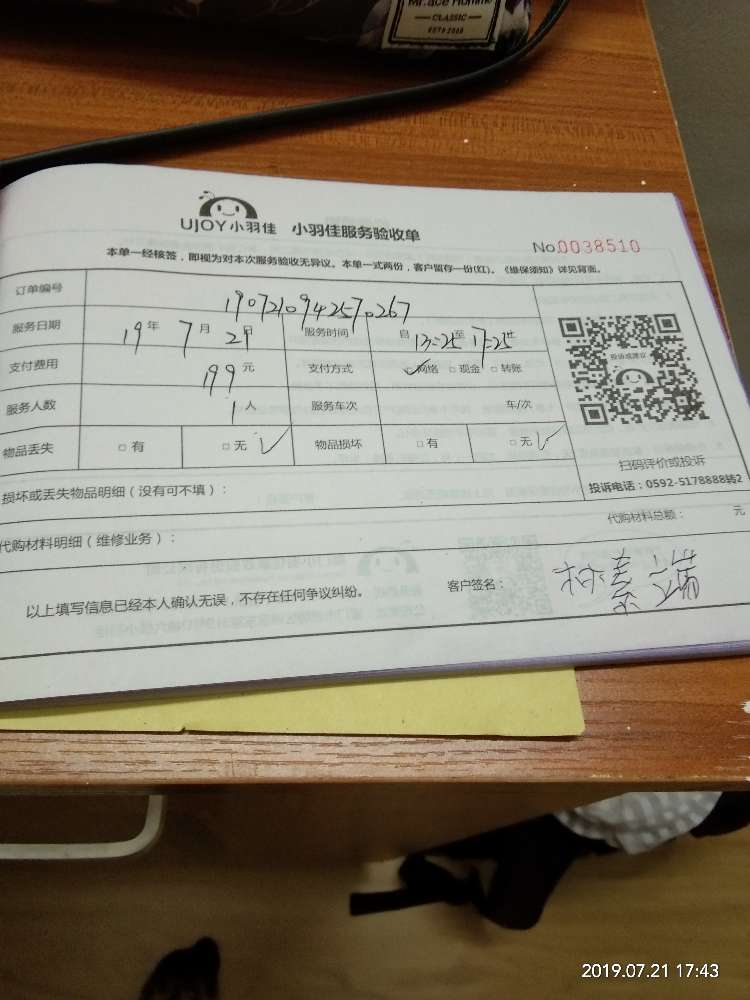 Mr.ace Homme
CLASSIC
ESTD 2008
UJOY小羽佳 小羽佳服务验收单
No.0038510
本单一经核签，即视为对本次服务验收无异议。本单一式两份，客户留存一份(红)。《维保须知》详见背面。
订单编号 1907210942570267
服务日期 19年 7月 21日 服务时间 自 13:25 至 17:25
支付费用 199元 支付方式 □网络 □现金 □转账
服务人数 1人 服务车次 车/次
物品丢失 □有 □无 ✓ 物品损坏 □有 □无 ✓
投诉或建议
扫码评价或投诉
投诉电话：0592-5178888转2
损坏或丢失物品明细（没有可不填）：
代购材料明细（维修业务）： 代购材料总额： 元
以上填写信息已经本人确认无误，不存在任何争议纠纷。 客户签名：
2019.07.21 17:43